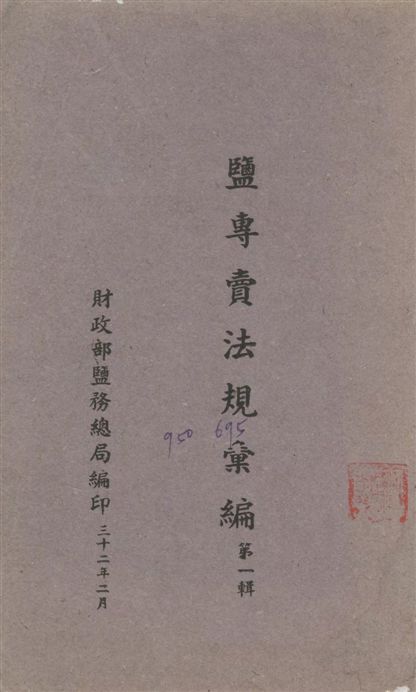 鹽專賣法規彙編 第一輯
財政部鹽務總局編印 三十二年二月
950 695